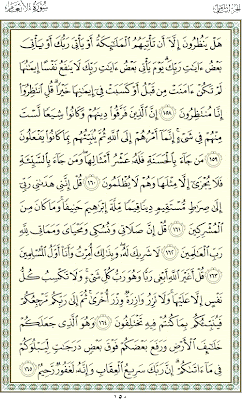 سورة الأنعام
الجزء الثامن
هَلْ يَنظُرُونَ إِلَّا أَن تَأْتِيَهُمُ الْمَلَائِكَةُ أَوْ يَأْتِيَ رَبُّكَ أَوْ يَأْتِيَ
بَعْضُ ءَايَاتِ رَبِّكَ يَوْمَ يَأْتِي بَعْضُ ءَايَاتِ رَبِّكَ لَا يَنفَعُ نَفْسًا إِيمَانُهَا
لَمْ تَكُنْ ءَامَنَتْ مِن قَبْلُ أَوْ كَسَبَتْ فِي إِيمَانِهَا خَيْرًا قُلِ انتَظِرُوا
إِنَّا مُنتَظِرُونَ ١٥٨ إِنَّ الَّذِينَ فَرَّقُوا دِينَهُمْ وَكَانُوا شِيَعًا لَّسْتَ
مِنْهُمْ فِي شَيْءٍ إِنَّمَا أَمْرُهُمْ إِلَى اللَّهِ ثُمَّ يُنَبِّئُهُم بِمَا كَانُوا يَفْعَلُونَ
١٥٩ مَن جَاءَ بِالْحَسَنَةِ فَلَهُ عَشْرُ أَمْثَالِهَا وَمَن جَاءَ بِالسَّيِّئَةِ
فَلَا يُجْزَىٰ إِلَّا مِثْلَهَا وَهُمْ لَا يُظْلَمُونَ ١٦٠ قُلْ إِنَّنِي هَدَانِي رَبِّي
إِلَىٰ صِرَاطٍ مُّسْتَقِيمٍ دِينًا قِيَمًا مِّلَّةَ إِبْرَاهِيمَ حَنِيفًا وَمَا كَانَ مِنَ
الْمُشْرِكِينَ ١٦١ قُلْ إِنَّ صَلَاتِي وَنُسُكِي وَمَحْيَايَ وَمَمَاتِي لِلَّهِ
رَبِّ الْعَالَمِينَ ١٦٢ لَا شَرِيكَ لَهُ وَبِذَٰلِكَ أُمِرْتُ وَأَنَا أَوَّلُ الْمُسْلِمِينَ
١٦٣ قُلْ أَغَيْرَ اللَّهِ أَبْغِي رَبًّا وَهُوَ رَبُّ كُلِّ شَيْءٍ وَلَا تَكْسِبُ كُلُّ
نَفْسٍ إِلَّا عَلَيْهَا وَلَا تَزِرُ وَازِرَةٌ وِزْرَ أُخْرَىٰ ثُمَّ إِلَىٰ رَبِّكُم مَّرْجِعُكُمْ
فَيُنَبِّئُكُم بِمَا كُنتُمْ فِيهِ تَخْتَلِفُونَ ١٦٤ وَهُوَ الَّذِي جَعَلَكُمْ
خَلَائِفَ الْأَرْضِ وَرَفَعَ بَعْضَكُمْ فَوْقَ بَعْضٍ دَرَجَاتٍ لِّيَبْلُوَكُمْ
فِي مَا ءَاتَاكُمْ إِنَّ رَبَّكَ سَرِيعُ الْعِقَابِ وَإِنَّهُ لَغَفُورٌ رَّحِيمٌ ١٦٥
١٥٠